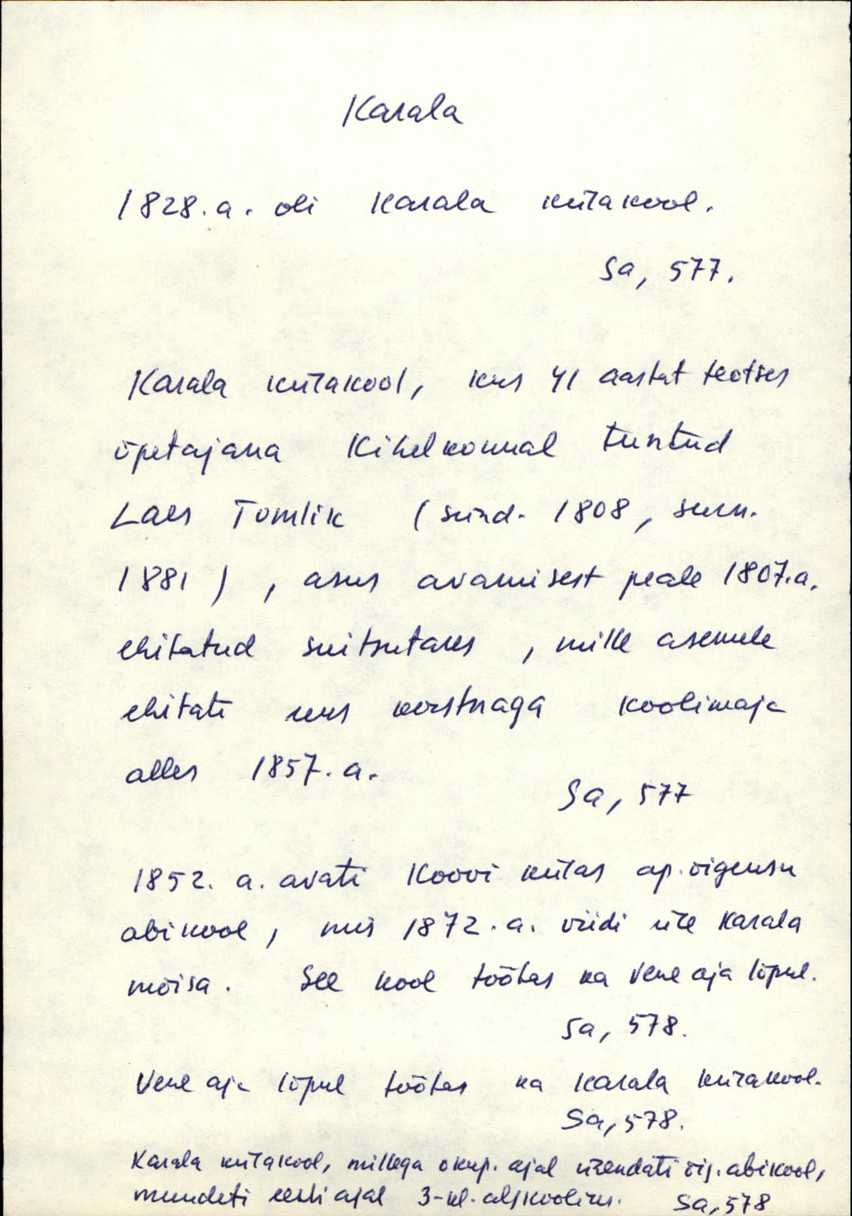 Karala
1828.a. oli Karala külakool.
Sa, 577.
Karala külakool, kus 41 aastat teotses
õpetajana Kihelkonnal tuntud
Laes Tomlik (sünd. 1808, surn.
1881), asus avamisest peale 1807.a.
ehitatud suitsutares, mille asemele
ehitati uus korstnaga koolimaja
alles 1857.a.
Sa, 577
1852. a. avati Koovi külas ap. õigeusu
abikool, mis 1872.a. viidi üle Karala
mõisa. See kool töötas ka Vene aja lõpul.
Sa, 578.
Vene aja lõpul töötas ka Karala külakool.
Sa, 578.
Karala külakool, millega okup. ajal ühendati õig. abikool,
muudeti eesti ajal 3-kl. algkooliks. Sa, 578